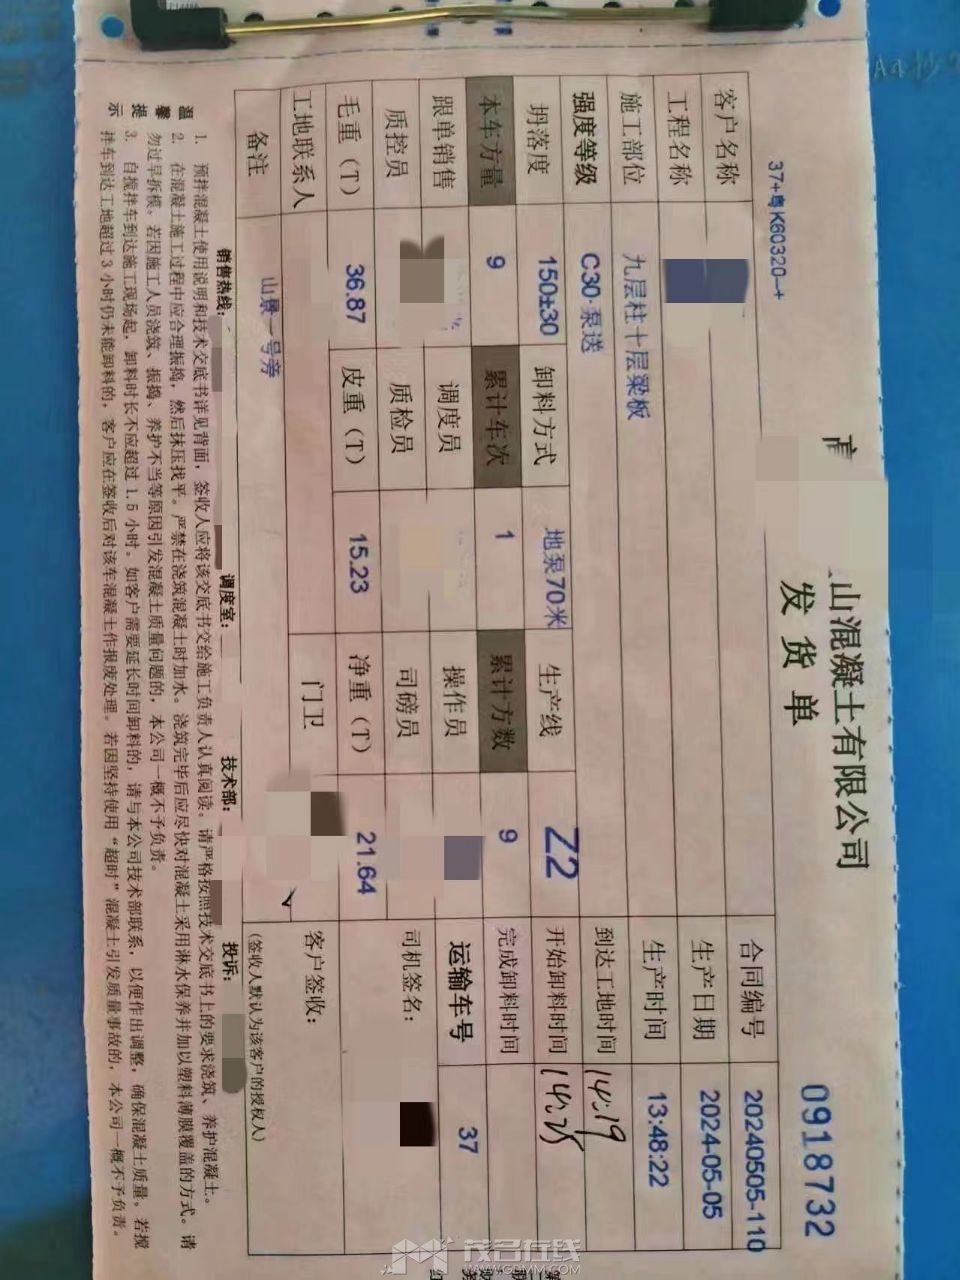 山混凝土有限公司
发货单
0918732
37+粤K60320-+
客户名称 合同编号 20240505-110
工程名称 生产日期 2024-05-05
施工部位 九层柱十层梁板 生产时间 13:48:22
强度等级 C30·泵送 到达工地时间 14:19
坍落度 150±30 卸料方式 地泵70米 生产线 Z2 开始卸料时间 14:25
本车方量 9 累计车次 1 累计方数 9 完成卸料时间
跟单销售 调度员 操作员 运输车号 37
质控员 质检员 司磅员 司机签名:
毛重(T) 36.87 皮重(T) 15.23 净重(T) 21.64
工地联系人 门卫 客户签收:
备注 山景一号旁 (签收人默认为该客户的授权人)
销售热线: 调度室: 技术部: 投诉:
温馨提示
1. 预拌混凝土使用说明和技术交底书详见背面，签收人应将该交底书交给施工负责人认真阅读。请严格按照技术交底书上的要求浇筑、养护混凝土。
2. 在混凝土施工过程中应合理振捣，然后抹压找平。严禁在浇筑混凝土时加水。浇筑完毕后应尽快对混凝土采用淋水保养并加以塑料薄膜覆盖的方式。请
勿过早拆模。若因施工人员浇筑、振捣、养护不当等原因引发混凝土质量问题的，本公司一概不予负责。
3. 自搅拌车到达施工现场起，卸料时长不应超过1.5小时。如客户需要延长时间卸料的，请与本公司技术部联系，以便作出调整，确保混凝土质量。若搅
拌车到达工地超过3小时仍未能卸料的，客户应在签收后对该车混凝土作报废处理。若因坚持使用“超时”混凝土引发质量事故的，本公司一概不予负责。
茂名在线
www.GDMM.com